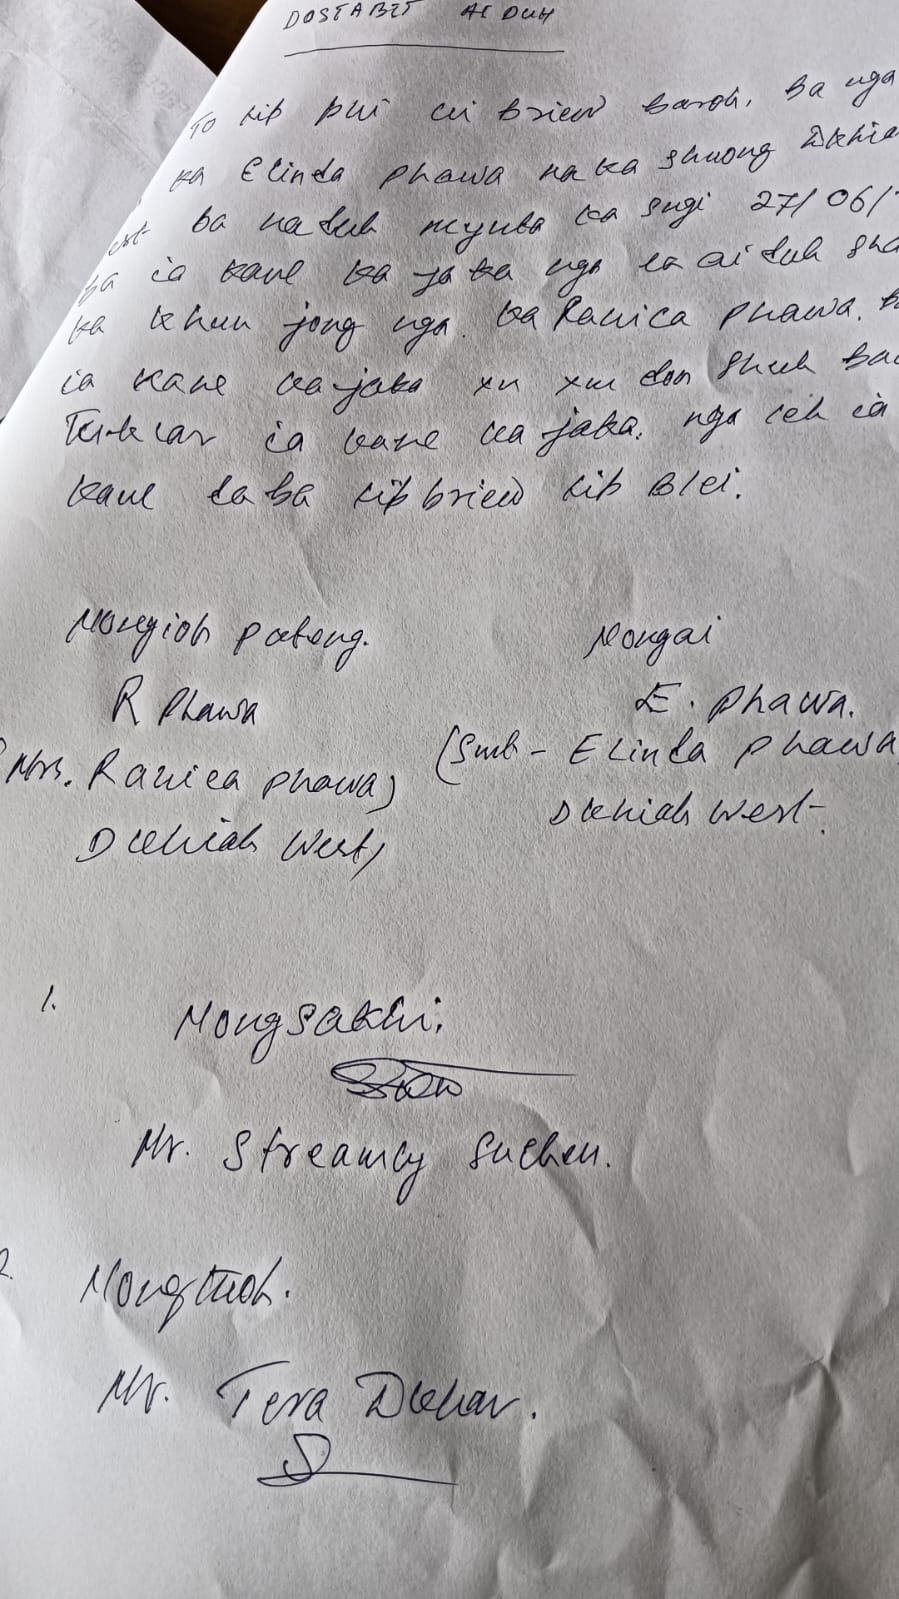 DOSTABET AI DUH
To tip phi ki briew baroh, ba nga
ka Elinda Phawa na ka shnong Dkhiah
West ba naduh mynta ka sngi 27/06/
ba ia kane ka jaka nga la ai duh sha
ka khun jong nga. ka Ranica Phawa.
ia kane ka jaka ym don shuh ba
Tuklar ia kane ka jaka. nga ieh ia
kane da ba tip briew tip Blei.
Nongioh pateng.
Nongai
R Phawa
E. Phawa.
Mrs. Ranica Phawa)
(Smt - Elinda Phawa
Dkhiah West,
Dkhiah West.
1.
Nongsakhi.
Mr. Streamly Suchen.
2.
Nongthoh.
Mr. Tera Dkhar.